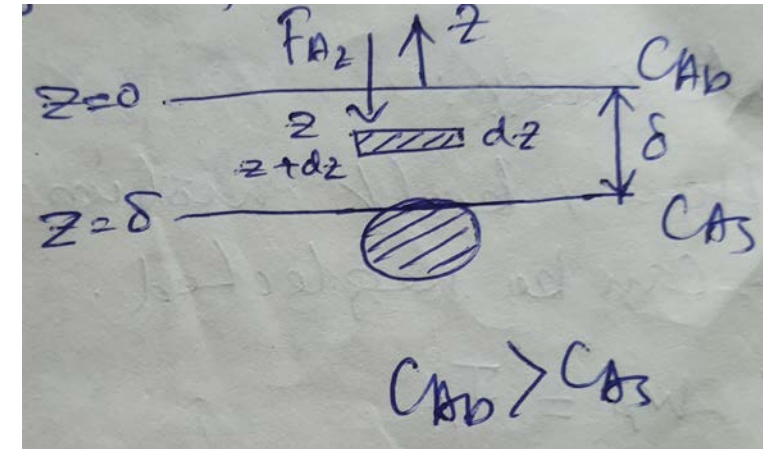 F_Az z
z=0 C_Ab
z dz δ
z+dz
z=δ C_As
C_Ab > C_As